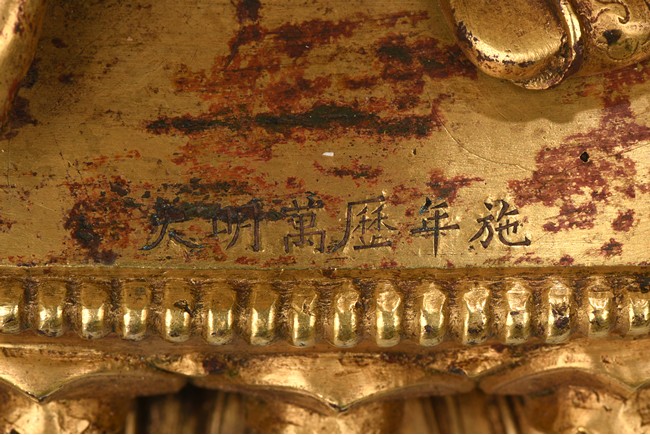 大明萬歷年施